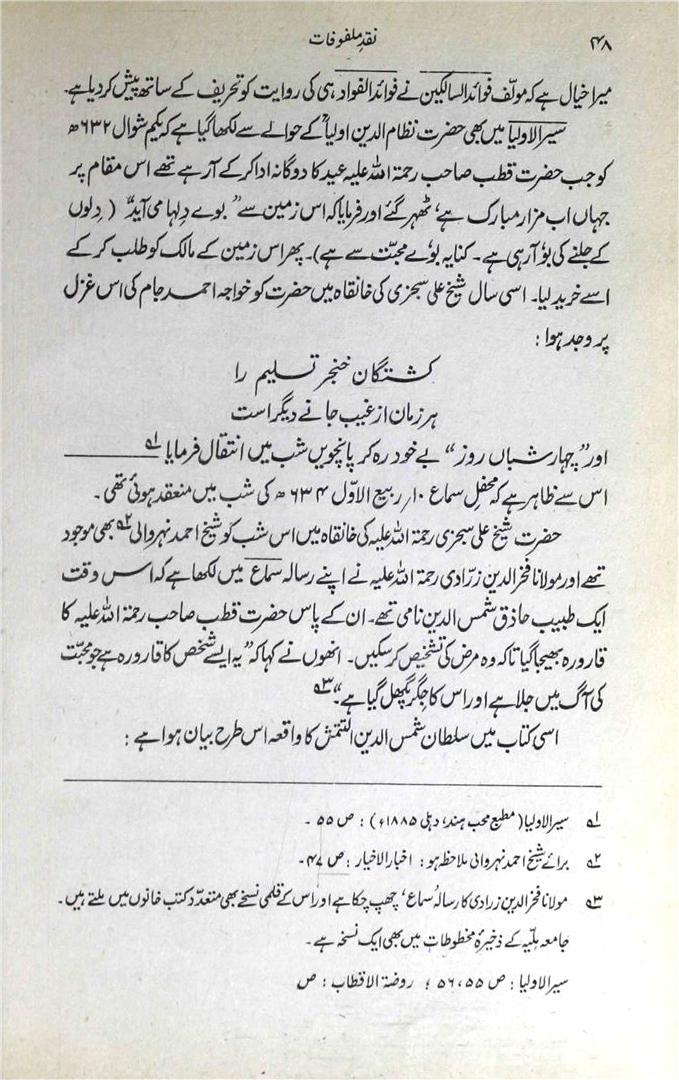 ۴۸
نقدِ ملفوظات
میرا خیال ہے کہ مولّف فوائد السالکین نے فوائد الفواد ہی کی روایت کو تحریف کے ساتھ پیش کر دیا ہے۔
سیر الاولیا میں بھی حضرت نظام الدین اولیاؒ کے حوالے سے لکھا گیا ہے کہ یکم شوال ۶۳۲ھ
کو جب حضرت قطب صاحب رحمۃ اللہ علیہ عید کا دوگانہ ادا کر کے آرہے تھے اس مقام پر
جہاں اب مزار مبارک ہے، ٹھہر گئے اور فرمایا کہ اس زمین سے ”بوے دلہا می آید“ ( دِلوں
کے جلنے کی بو آرہی ہے۔ کنایہ بوے محبّت سے ہے)۔ پھر اس زمین کے مالک کو طلب کر کے
اسے خرید لیا۔ اسی سال شیخ علی سجزی کی خانقاہ میں حضرت کو خواجہ احمد جام کی اس غزل
پر وجد ہوا :
کشتگانِ خنجرِ تسلیم را
ہر زمان از غیب جانے دیگر است
اور ”چہار شباں روز“ بے خود رہ کر پانچویں شب میں انتقال فرمایا ؎۱
اس سے ظاہر ہے کہ محفلِ سماع ۱۰/ ربیع الاوّل ۶۳۴ھ کی شب میں منعقد ہوئی تھی۔
حضرت شیخ علی سجزی رحمۃ اللہ علیہ کی خانقاہ میں اس شب کو شیخ احمد نہروالی ؎۲ بھی موجود
تھے اور مولانا فخر الدین زرّادی رحمۃ اللہ علیہ نے اپنے رسالہ سماع میں لکھا ہے کہ اس وقت
ایک طبیب حاذق شمس الدین نامی تھے۔ ان کے پاس حضرت قطب صاحب رحمۃ اللہ علیہ کا
قارورہ بھیجا گیا تاکہ وہ مرض کی تشخیص کر سکیں۔ انھوں نے کہا کہ ”یہ ایسے شخص کا قارورہ ہے جو محبّت
کی آگ میں جلا ہے اور اس کا جگر پگھل گیا ہے“ ؎۳
اسی کتاب میں سلطان شمس الدین التتمش کا واقعہ اس طرح بیان ہوا ہے :
؎۱ سیر الاولیا ( مطبع محب ہند، دہلی ۱۸۸۵ء) : ص ۵۵ ۔
؎۲ برائے شیخ احمد نہروالی ملاحظہ ہو : اخبار الاخیار : ص ۴۷۔
؎۳ مولانا فخر الدین زرادی کا رسالہ ’سماع‘ چھپ چکا ہے اور اس کے قلمی نسخے بھی متعدّد کتب خانوں میں ملتے ہیں۔
جامعہ ملّیہ کے ذخیرۂ مخطوطات میں بھی ایک نسخہ ہے۔
سیر الاولیا : ص ۵۵، ۵۶ ؛ روضۃ الاقطاب : ص